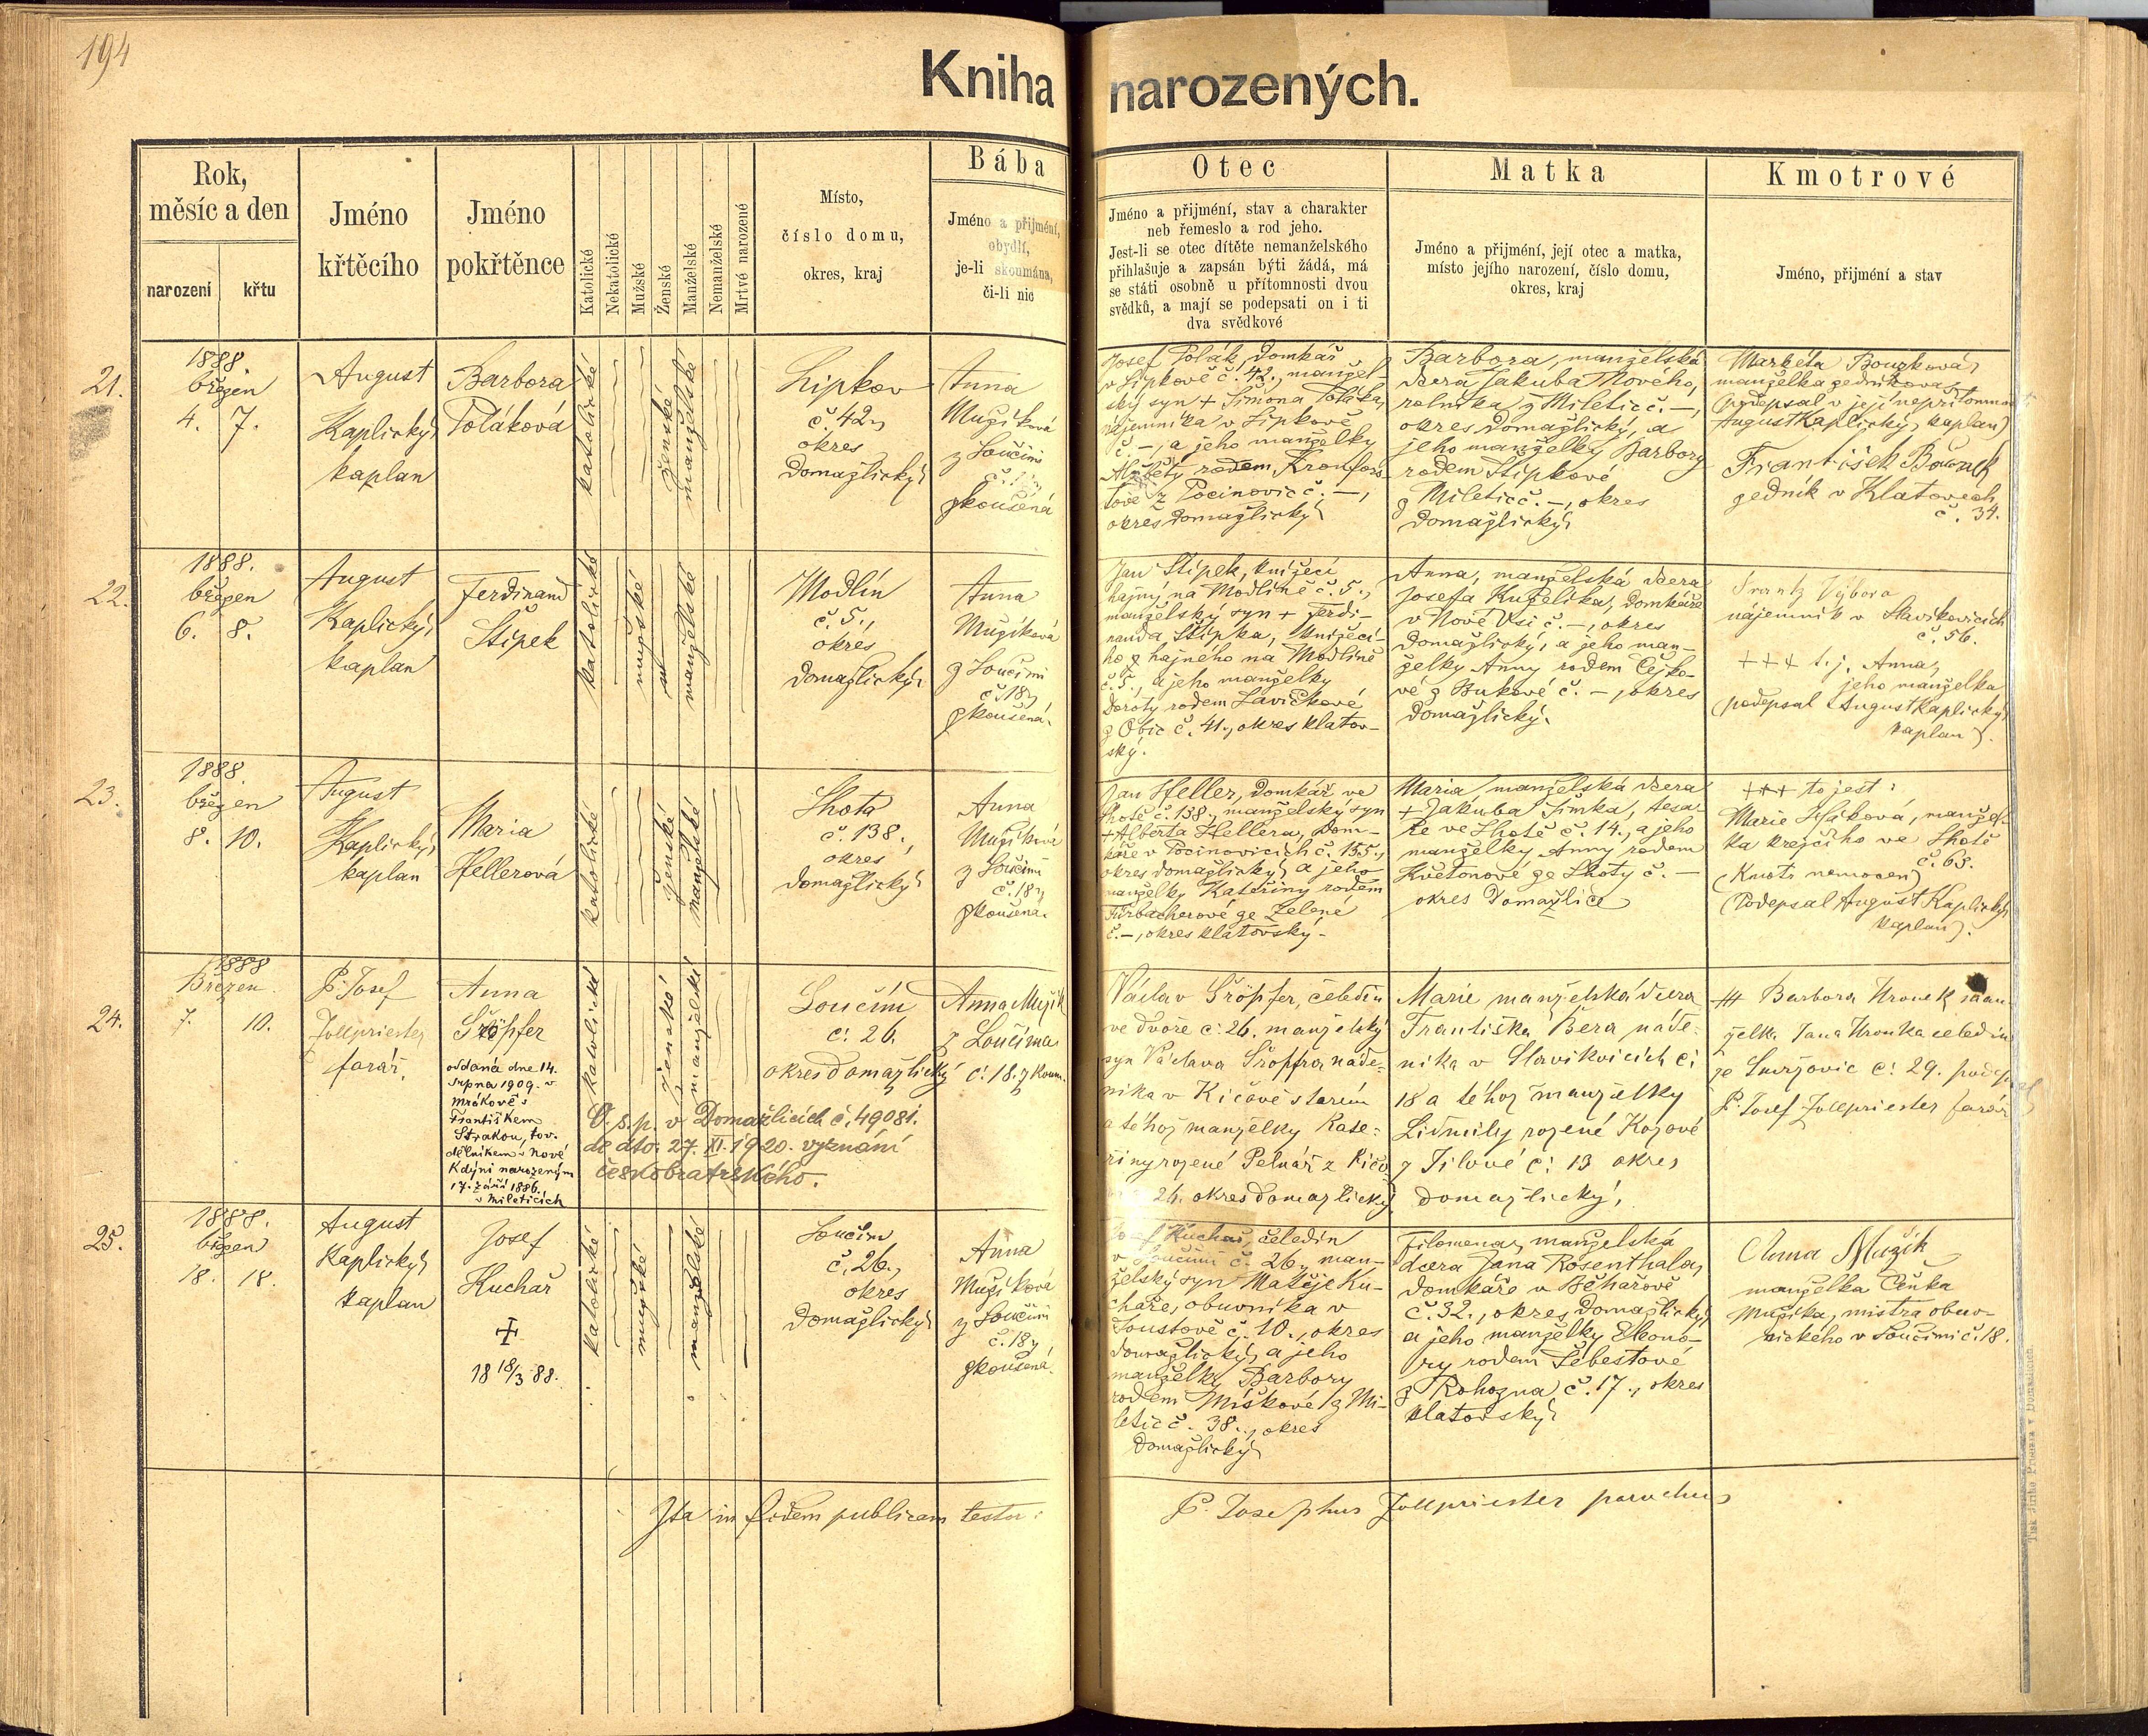 194
Kniha narozených.
Rok,
měsíc a den
narození
křtu
Jméno
křtěcího
Jméno
pokřtěnce
Katolické
Nekatolické
Mužské
Ženské
Manželské
Nemanželské
Mrtvé narozené
Místo,
číslo domu,
okres, kraj
Bába
Jméno a přijmení,
obydlí,
je-li skoumána,
či-li nic
Otec
Jméno a přijmení, stav a charakter
neb řemeslo a rod jeho.
Jest-li se otec dítěte nemanželského
přihlašuje a zapsán býti žádá, má
se státi osobně u přítomnosti dvou
svědků, a mají se podepsati on i ti
dva svědkové
Matka
Jméno a přijmení, její otec a matka,
místo jejího narození, číslo domu,
okres, kraj
Kmotrové
Jméno, přijmení a stav
21.
1888.
březen
4. 7.
August
Kaplický,
kaplan
Barbora
Poláková
katolické
ženské
manželské
Lipkov
č. 42,
okres
Domažlický
Anna
Mužíková
z Loučimi
zkoušená
Josef Polák, domkář
v Lipkově č. 42., manžel-
ský syn + Šimona Poláka,
nájemníka v Lipkově
č. –, a jeho manželky
Alžběty rodem Kronfors-
tové z Pocinovic č. –,
okres domažlický
Barbora, manželská
dcera Jakuba Nového,
rolníka z Miletic č. –,
okres domažlický, a
jeho manželky Barbory
rodem Štípkové
z Miletic č. –, okres
domažlický.
Markéta Bouzková,
manželka zedníkova,
(podepsal v její nepřítomnos
August Kaplický, kaplan)
František Bouzk
zedník v Klatovech
č. 34.
22.
1888.
březen
6. 8.
August
Kaplický,
kaplan
Ferdinand
Štípek
katolické
mužské
manželské
Modlín
č. 5.,
okres
domažlický.
Anna
Mužíková
z Loučimi
č. 18,
zkoušená.
Jan Štípek, knížecí
hajný na Modlíně č. 5.,
manželský syn + Ferdi-
nanda Štípka, knížecí-
ho hajného na Modlíně
č. 5., a jeho manželky
Doroty rodem Lavičkové
z Obic č. 41., okres klatov-
ský.
Anna, manželská dcera
Josefa Kuželíka, domkáře
v Nové Vsi č. –, okres
domažlický, a jeho man-
želky Anny rodem Čejko-
vé z Bukové č. –, okres
domažlický.
Frantz Výbora
nájemník v Slavíkovicích
č. 56.
+++ t. j. Anna,
jeho manželka
(podepsal August Kaplický
kaplan).
23.
1888.
březen
8. 10.
August
Kaplický,
kaplan
Maria
Hellerová
katolické
ženské
manželské
Lhota
č. 138.,
okres
domažlický
Anna
Mužíková
z Loučimi
č. 18,
zkoušená.
Jan Heller, domkář ve
Lhotě č. 138., manželský syn
+ Alberta Hellera, dom-
káře v Pocinovicích č. 155.,
okres domažlický, a jeho
manželky Kateřiny rodem
Fürbacherové ze Zelené
č. –, okres klatovský.
Maria, manželská dcera
+ Jakuba Šimka, tesa-
ře ve Lhotě č. 14., a jeho
manželky Anny rodem
Květonové ze Lhoty č. –
okres Domažlice
+++ to jest:
Marie, manžel-
ka krejčího ve Lhotě
č. 63.
(Kmotr nemocen)
(Podepsal August Kaplický
kaplan).
24.
1888
Březen
7. 10.
P. Josef
Zollpriester
farář.
Anna
Šröpfer
oddaná dne 14.
srpna 1909. v
Mrákově s
Františkem
Strakou, tov.
dělníkem v Nové
Kdýni narozeným
17. září 1886.
v Mileticích
katolické
ženské
manželské
O. s. p. v Domažlicích č. 49081.
de dto. 27. XI. 1920. vyznání
českobratrského.
Loučím
č: 26.
okres domažlický
Anna Mužík
z Loučíma
č: 18. zkoum.
Václav Šröpfer, čeledín
ve dvoře č: 26. manželský
syn Václava Šröpfra náde-
níka v Kíčově starém
a téhož manželky Kate-
řiny rozené Pelnář z Kíčo
26. okres domažlický
Marie manželská dcera
Františka Bera náde-
níka v Slavíkvicích č:
18 a téhož manželky
Lidmily rozené Kozové
z Jílové č: 13 okres
domažlický,
+++ Barbora Hronek man
želk. Jana Hronka celedín
ze Smržovic č: 29. podeps
P. Josef Zollpriester farář
25.
1888.
březen
18. 18.
August
Kaplický,
kaplan
Josef
Kuchař
18 18/3 88.
katolické
mužské
manželské
Loučim
č. 26.,
okres
domažlický
Anna
Mužíková
z Loučimi
č. 18,
zkoušená.
Josef Kuchař, čeledín
v Loučimi č. 26., man-
želský syn Matěje Ku-
chaře, obuvníka v
Loustově č. 10., okres
domažlický, a jeho
manželky Barbory
rodem Míškové z Mi-
letic č. 38., okres
domažlický
Filomena, manželská
dcera Jana Rosenthala,
domkáře v Běhařově
č. 32., okres domažlický,
a jeho manželky Eleono-
ry rodem Šebestové
z Rohozna č. 17., okres
klatovský.
Anna Mužík
manželka Čeňka
Mužíka, mistra obuv-
nického v Loučimi č. 18.
Ita in fidem publicam testor:
P. Josephus Zollpriester parochus